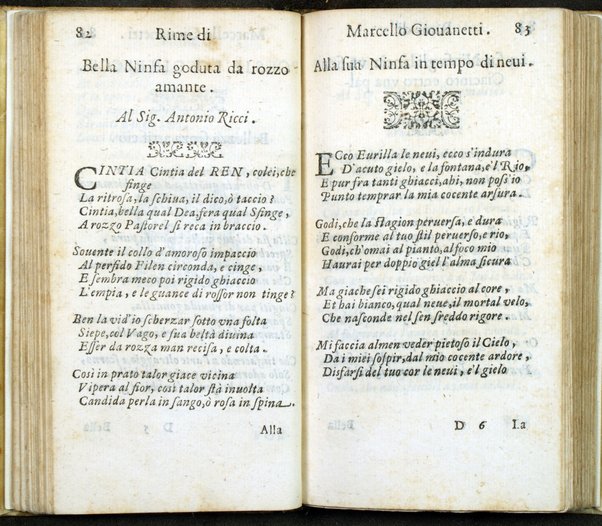 82 Rime di
Bella Ninfa goduta da rozzo
amante.
Al Sig. Antonio Ricci.
CINTIA Cintia del REN, colei, che
finge
La ritrosa, la schiua, il dico, ò taccio?
Cintia, bella qual Dea, fera qual Sfinge,
A rozgo Pastorel si reca in braccio.
Souente il collo d'amoroso impaccio
Al perfido Filen circonda, e cinge,
E sembra meco poi rigido ghiaccio
L'empia, e le guance di rossor non tinge?
Ben la vid'io scherzar sotto vna folta
Siepe, col Vago, e sua beltà diuina
Esser da rozza man recisa, e colta.
Così in prato talor giace vicina
Vipera al fior, così talor stà inuolta
Candida perla in fango, ò rosa in spina.
Alla
Marcello Giouanetti. 83
Alla sua Ninfa in tempo di neui.
ECco Eurilla le neui, ecco s'indura
D'acuto gielo, e la fontana, e'l Rio,
E pur fra tanti ghiacci, ahi, non poss'io
Punto temprar la mia cocente arsura.
Godi, che la stagion peruersa, e dura
E conforme al tuo stil peruerso, e rio,
Godi, ch'omai al pianto, al foco mio
Haurai per doppio giel l'alma sicura
Ma giache sei rigido ghiaccio al core,
Et hai bianco, qual neue, il mortal velo,
Che nasconde nel sen freddo rigore.
Mi faccia almen veder pietoso il Cielo,
Da i miei sospir, dal mio cocente ardore,
Disfarsi del tuo cor le neui, e'l gielo
D 6 La